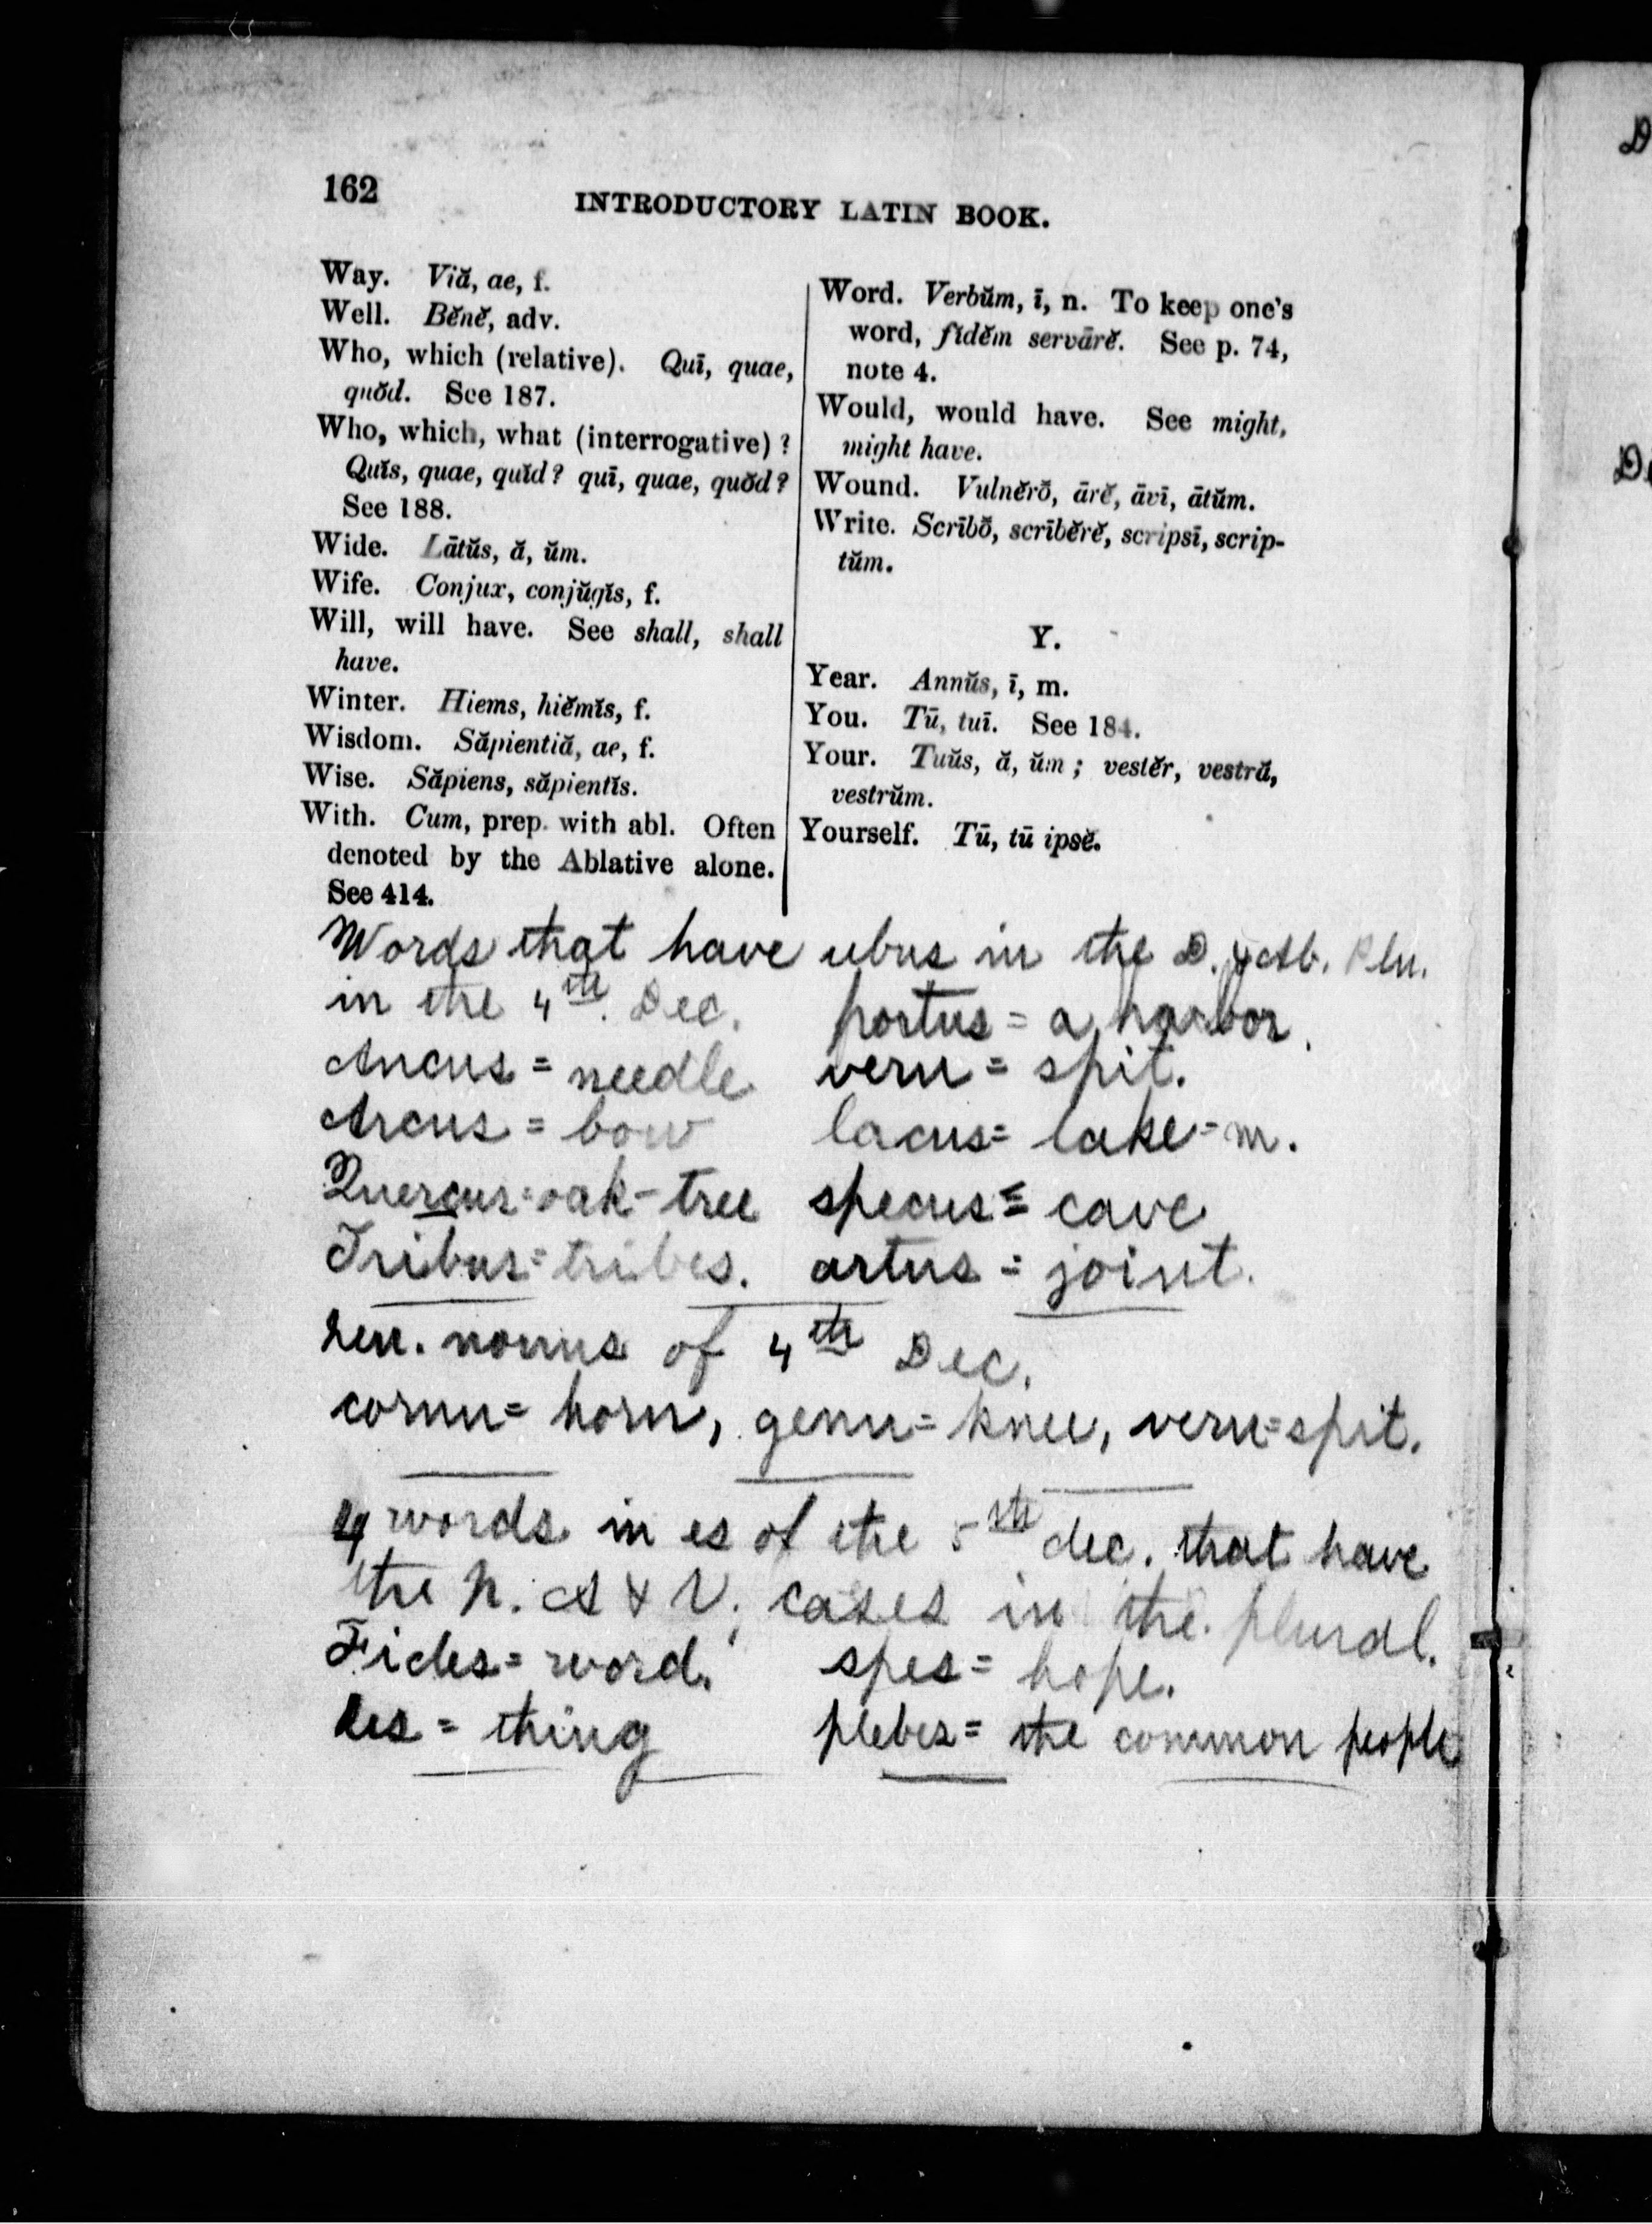 162
INTRODUCTORY LATIN BOOK.
Way. Viă, ae, f.
Well. Bĕnĕ, adv.
Who, which (relative). Quī, quae,
quŏd. See 187.
Who, which, what (interrogative)?
Quĭs, quae, quĭd? quī, quae, quŏd?
See 188.
Wide. Lātŭs, ă, ŭm.
Wife. Conjux, conjŭgĭs, f.
Will, will have. See shall, shall
have.
Winter. Hiems, hiĕmĭs, f.
Wisdom. Săpientiă, ae, f.
Wise. Săpiens, săpientĭs.
With. Cum, prep. with abl. Often
denoted by the Ablative alone.
See 414.
Word. Verbŭm, ī, n. To keep one's
word, fĭdĕm servārĕ. See p. 74,
note 4.
Would, would have. See might,
might have.
Wound. Vulnĕrŏ, ārĕ, āvī, ātŭm.
Write. Scrībŏ, scrībĕrĕ, scripsī, scrip-
tŭm.
Y.
Year. Annŭs, ī, m.
You. Tū, tuī. See 184.
Your. Tuŭs, ă, ŭm; vestĕr, vestră,
vestrŭm.
Yourself. Tū, tū ipsĕ.
Words that have ubus in the D. & Ab. Plu.
in the 4th. Dec. portus = a harbor.
Ancus = needle veru = spit.
Arcus = bow lacus = lake = m.
Quercus = oak-tree specus = cave
Tribus = tribes. artus = joint.
nouns of 4th Dec.
cornu = horn, genu = knee, veru = spit.
4 words in es of the 5th dec. that have
the N. A & V. cases in the plural.
Fides = word. spes = hope.
Res = thing plebes = the common people
D